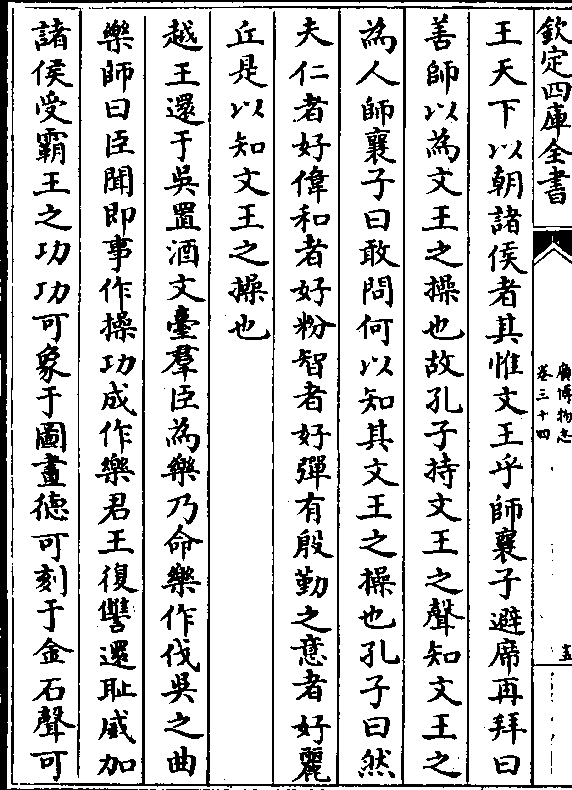 欽定四庫全書
廣博物志
卷三十四
五
王天下以朝諸侯者其惟文王乎師襄子避席再拜曰
善師以為文王之操也故孔子持文王之聲知文王之
為人師襄子曰敢問何以知其文王之操也孔子曰然
夫仁者好偉和者好粉智者好彈有殷勤之意者好麗
丘是以知文王之操也
越王還于吳置酒文臺羣臣為樂乃命樂作伐吳之曲
樂師曰臣聞即事作操功成作樂君王復讐還恥威加
諸侯受霸王之功功可象于圖畫德可刻于金石聲可